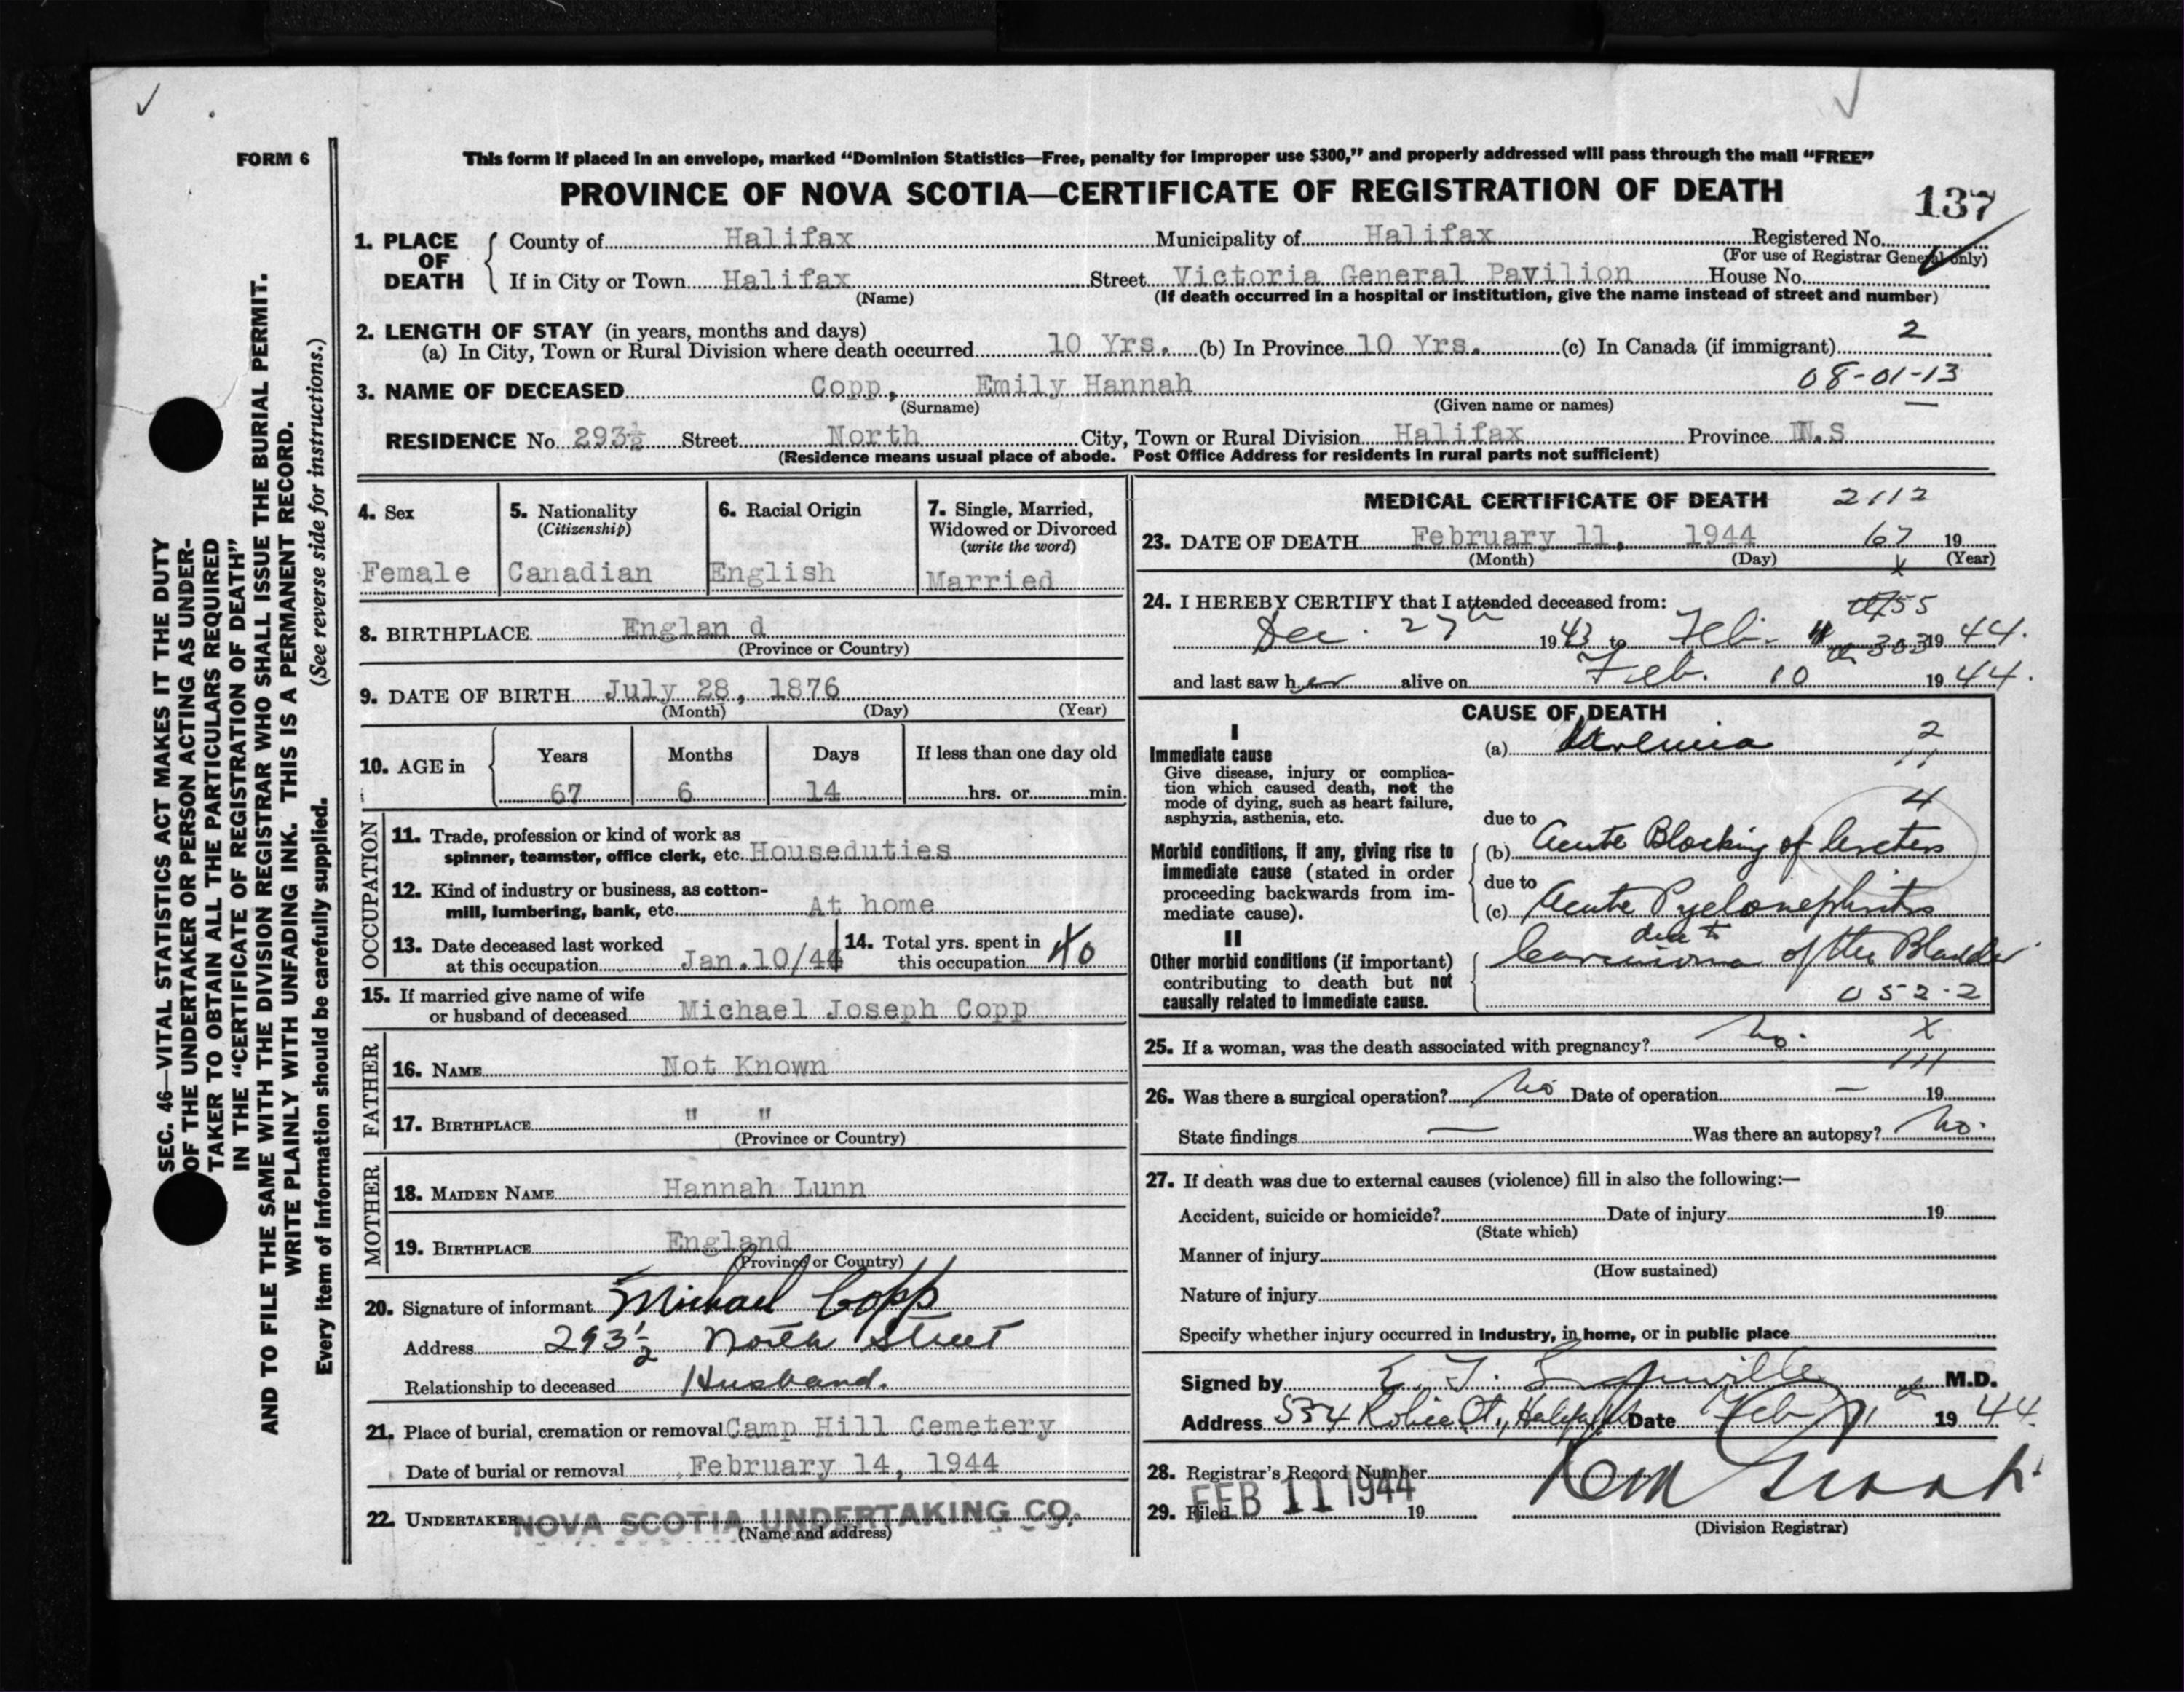 FORM 6
This form if placed in an envelope, marked “Dominion Statistics—Free, penalty for improper use $300,” and properly addressed will pass through the mail “FREE”
PROVINCE OF NOVA SCOTIA—CERTIFICATE OF REGISTRATION OF DEATH
137
1. PLACE OF DEATH
County of Halifax Municipality of Halifax Registered No.
(For use of Registrar General only)
If in City or Town Halifax Street Victoria General Pavilion House No.
(Name) (If death occurred in a hospital or institution, give the name instead of street and number)
2. LENGTH OF STAY (in years, months and days)
(a) In City, Town or Rural Division where death occurred 10 Yrs. (b) In Province 10 Yrs. (c) In Canada (if immigrant) 2
3. NAME OF DECEASED Copp, Emily Hannah 08-01-13
(Surname) (Given name or names)
RESIDENCE No. 293½ Street North City, Town or Rural Division Halifax Province N.S
(Residence means usual place of abode. Post Office Address for residents in rural parts not sufficient)
4. Sex
Female
5. Nationality
(Citizenship)
Canadian
6. Racial Origin
English
7. Single, Married,
Widowed or Divorced
(write the word)
Married
8. BIRTHPLACE Englan d
(Province or Country)
9. DATE OF BIRTH July 28, 1876
(Month) (Day) (Year)
10. AGE in
Years Months Days If less than one day old
67 6 14 hrs. or min.
OCCUPATION
11. Trade, profession or kind of work as
spinner, teamster, office clerk, etc. Houseduties
12. Kind of industry or business, as cotton-
mill, lumbering, bank, etc. At home
13. Date deceased last worked
at this occupation Jan.10/44
14. Total yrs. spent in
this occupation 40
15. If married give name of wife
or husband of deceased Michael Joseph Copp
FATHER
16. NAME Not Known
17. BIRTHPLACE " "
(Province or Country)
MOTHER
18. MAIDEN NAME Hannah Lunn
19. BIRTHPLACE England
(Province or Country)
20. Signature of informant Michael Copp
Address 293½ North Street
Relationship to deceased Husband.
21. Place of burial, cremation or removal Camp Hill Cemetery
Date of burial or removal February 14, 1944
22. UNDERTAKER NOVA SCOTIA UNDERTAKING CO.
(Name and address)
MEDICAL CERTIFICATE OF DEATH 2112
23. DATE OF DEATH February 11, 1944 67 19
(Month) (Day) (Year)
24. I HEREBY CERTIFY that I attended deceased from:
55
Dec. 27th 1943 to Feb. 11th 303 1944.
and last saw her alive on Feb. 10 1944.
CAUSE OF DEATH
I
Immediate cause
Give disease, injury or complica-
tion which caused death, not the
mode of dying, such as heart failure,
asphyxia, asthenia, etc.
(a) Uremia 2
11
4
due to
Morbid conditions, if any, giving rise to
immediate cause (stated in order
proceeding backwards from im-
mediate cause).
(b) Acute Blocking of Ureters
due to
(c) Acute Pyelonephritis
due to
II
Other morbid conditions (if important)
contributing to death but not
causally related to immediate cause.
Carcinoma of the Bladder
052-2
25. If a woman, was the death associated with pregnancy? No. X
111
26. Was there a surgical operation? No Date of operation — 19
State findings — Was there an autopsy? No.
27. If death was due to external causes (violence) fill in also the following:—
Accident, suicide or homicide? Date of injury 19
(State which)
Manner of injury
(How sustained)
Nature of injury
Specify whether injury occurred in industry, in home, or in public place
Signed by E. T. M.D.
Address 534 Robie St., Halifax Date Feb 11th 1944
28. Registrar's Record Number
29. Filed FEB 11 1944 19
(Division Registrar)
SEC. 46—VITAL STATISTICS ACT MAKES IT THE DUTY
OF THE UNDERTAKER OR PERSON ACTING AS UNDER-
TAKER TO OBTAIN ALL THE PARTICULARS REQUIRED
IN THE “CERTIFICATE OF REGISTRATION OF DEATH”
AND TO FILE THE SAME WITH THE DIVISION REGISTRAR WHO SHALL ISSUE THE BURIAL PERMIT.
WRITE PLAINLY WITH UNFADING INK. THIS IS A PERMANENT RECORD.
Every item of information should be carefully supplied. (See reverse side for instructions.)